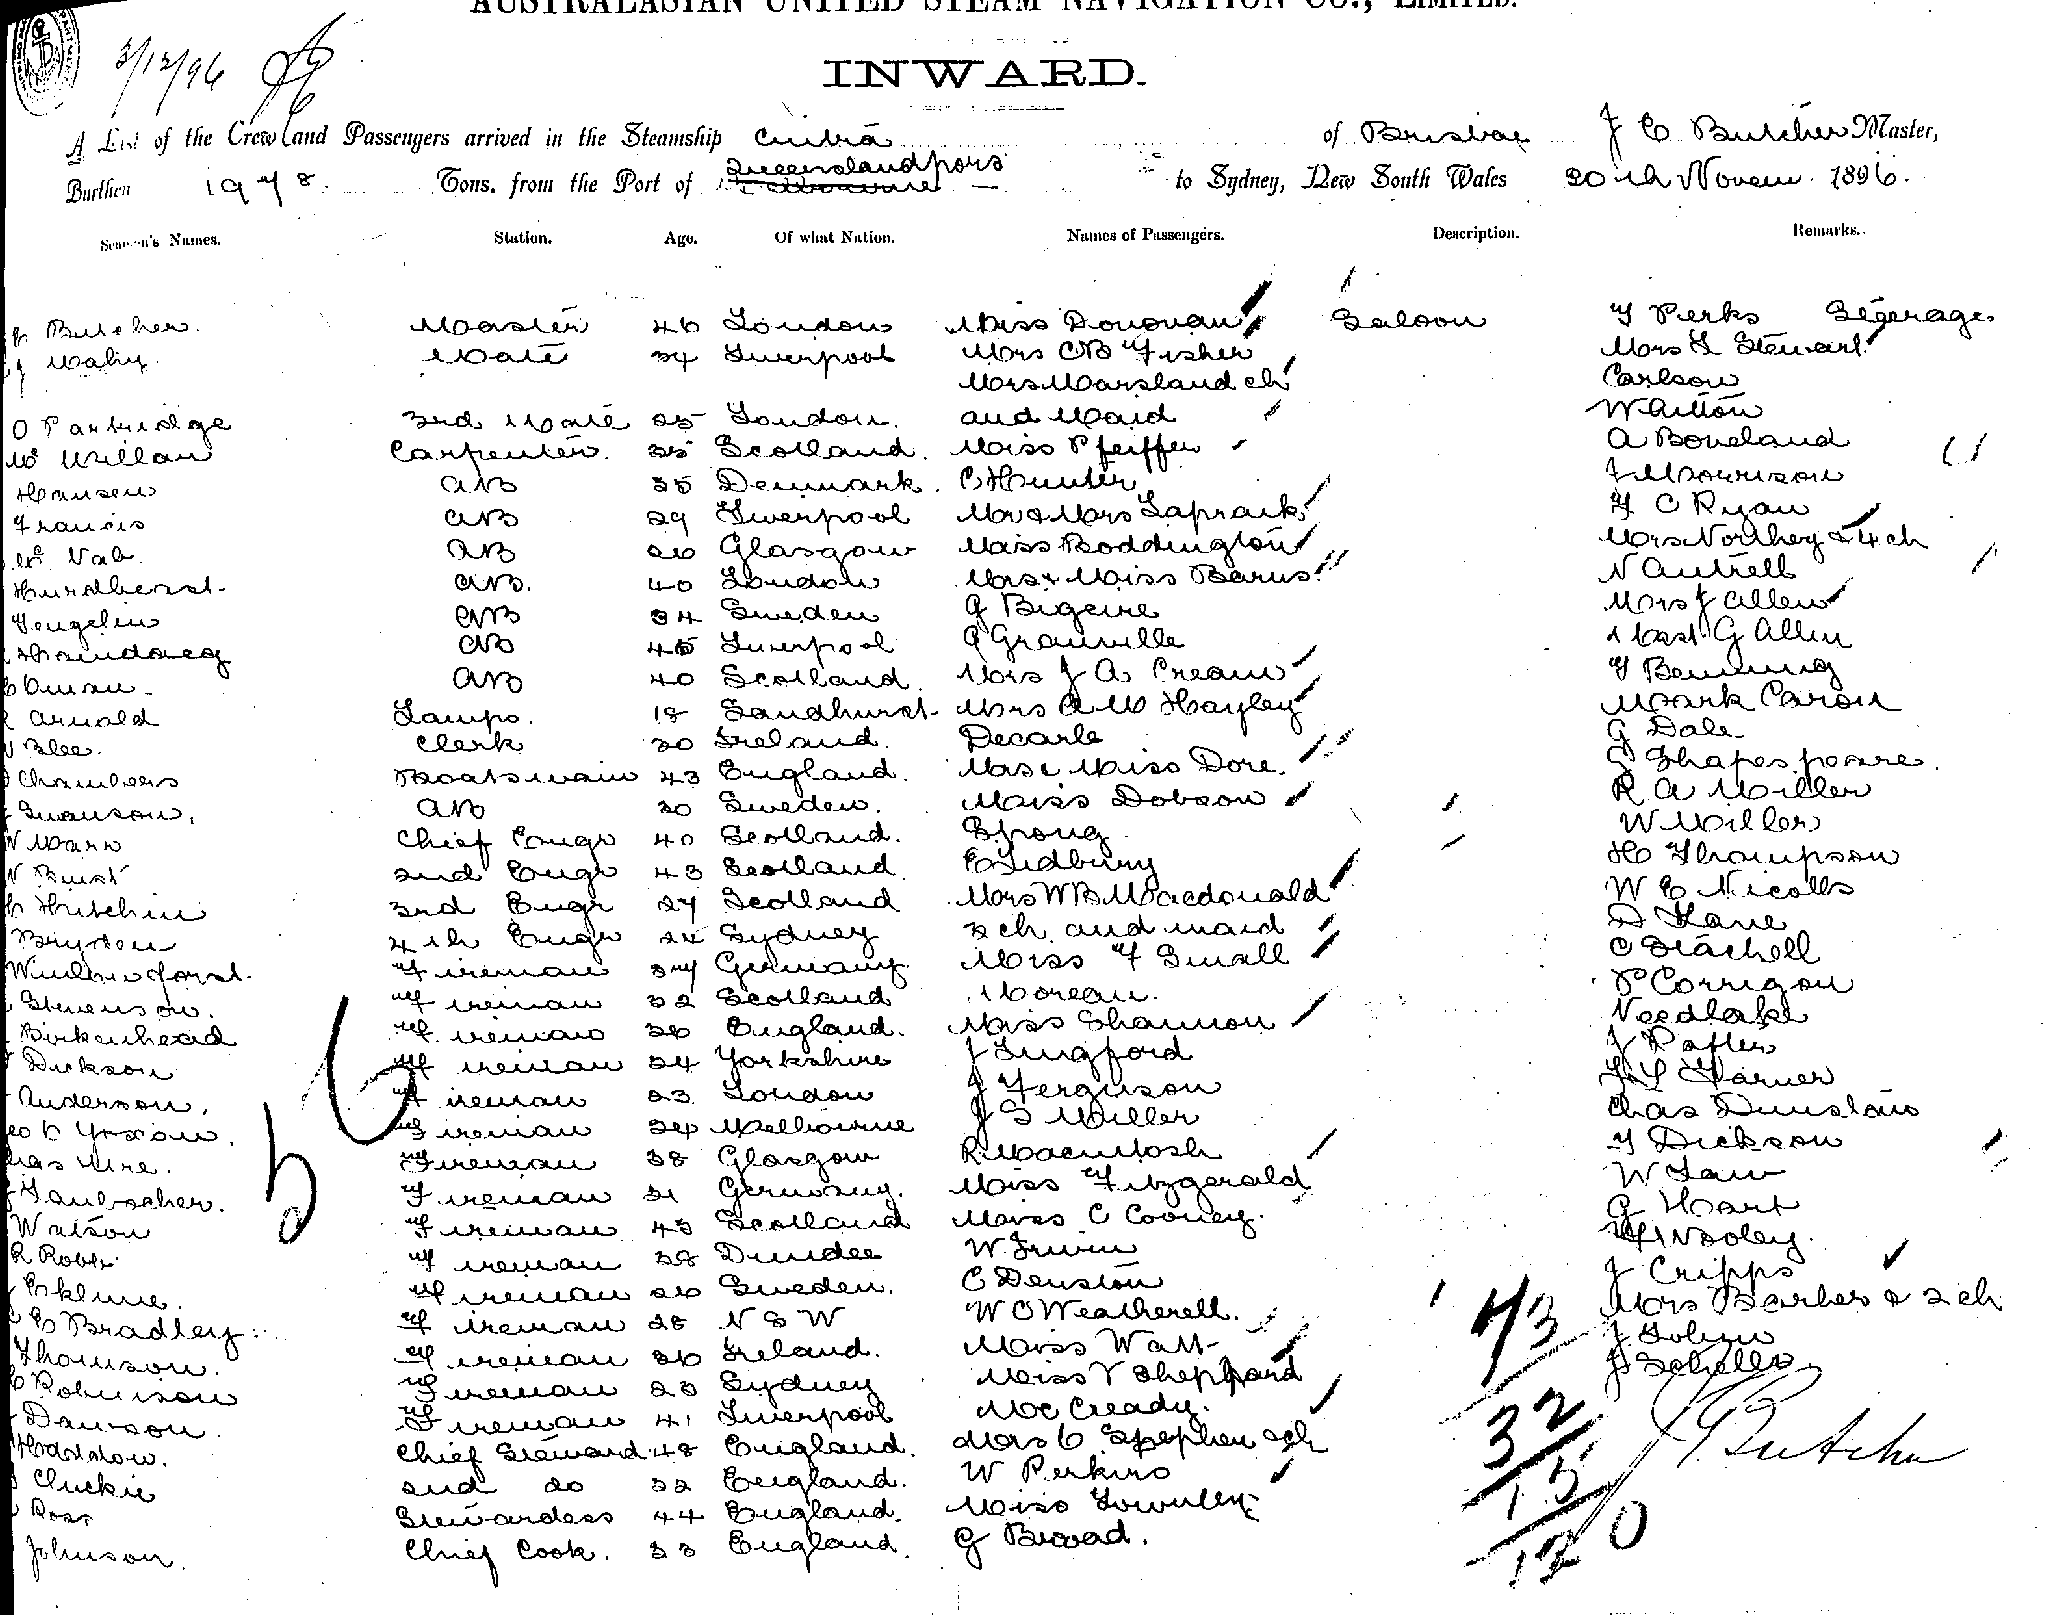 AUSTRALASIAN UNITED STEAM NAVIGATION CO., LIMITED.
3/12/96
INWARD.
A List of the Crew and Passengers arrived in the Steamship Cintra of Brisbane J C Butcher Master,
Burthen 1978 Tons. from the Port of Queensland pors Melbourne to Sydney, New South Wales 30th Novem. 1896.
Seamen's Names. Station. Age. Of what Nation. Names of Passengers. Description. Remarks.
Butcher. Master 46 London Miss Donovan Saloon F Perks Steerage
Maby Mate 34 Liverpool Mrs CB Fisher Mrs L Stewart
Mrs Marsland ch Carlson
O Partridge 3rd Mate 25 London. and Maid W Aitton
Mc Millan Carpenter. 35 Scotland. Miss Pfeiffer A Boneland
Hansen AB 35 Denmark. C Hunter J Morrison
Francis AB 29 Liverpool Mr & Mrs Lapraik F C Ryan
Mc Nab. AB 26 Glasgow Miss Boddington Mrs Northey & 4 ch
AB. 40 London Mrs & Miss Barns N Autrell
Fengelin AB 34 Sweden G Bigeire Mrs J Allen
AB 45 Liverpool G Granville Mast G Allen
AB 40 Scotland Mrs J A Cream F Benning
Arnold Lamps. 18 Sandhurst. Mrs A W Hayley Mark Caron
Blee. Clerk 30 Ireland. Decarle G Dale
Chambers Boatswain 43 England. Mrs & Miss Dore. G Shapespeare.
Swanson. AB 30 Sweden. Miss Dobson R A Miller
W Marr Chief Engr 40 Scotland. Spong W Miller
2nd Engr 43 Scotland. E Sidbury H Thompson
Hutchin 3rd Engr 27 Scotland Mrs W B Macdonald W E Nicolls
Bryden 4th Engr 24 Sydney 2 ch. and maid D Lane
Fireman 37 Germany. Miss F Small C Stachell
Stevenson. Fireman 32 Scotland Moreau. P Corrigan
Birkenhead Fireman 36 England. Miss Shannon Needlake
Dickson Fireman 24 Yorkshire J Lingford J Pafler
Anderson. Fireman 23 London J Ferguson Warner
Fireman 34 Melbourne J S Miller Chas Dunstan
Fireman 38 Glasgow R Macintosh F Dickson
Taubscher. Fireman 31 Germany. Miss Fitzgerald W Law
Watson Fireman 43 Scotland Miss C Cooney. G Hart
R Robb. Fireman 38 Dundee W Irwin Wooley.
Eklune. Fireman 26 Sweden. C Denston J Cripps
Bradley. Fireman 28 N S W W O Weatherell. Mrs Barber & 2 ch
Thomson. Fireman 36 Ireland. Miss Watt J Tobyn
Robinson Fireman 23 Sydney Miss V Shephard
Dawson. Fireman 41 Liverpool McCready.
Haddow. Chief Steward 48 England. Mrs C Stephen 2 ch
Cluckie 2nd do 32 England. W Perkins
Ross Stewardess 44 England. Miss Townlley
Johnson. Chief Cook. 33 England. G Broad.
56
43
32
15
120
J Butcher